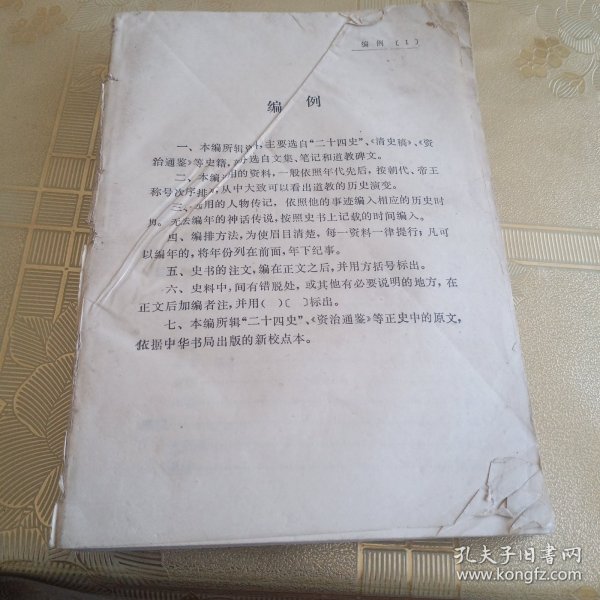 编 例 〔1〕
编 例
一、本编所辑 料，主要选自“二十四史”、《清史稿》、《资
治通鉴》等史籍， 分选自文集、笔记和道教碑文。
二、本编 用的资料，一般依照年代先后，按朝代、帝王
称号次序排 ，从中大致可以看出道教的历史演变。
三、 用的人物传记，依照他的事迹编入相应的历史时
期。无法编年的神话传说，按照史书上记载的时间编入。
四、编排方法，为使眉目清楚，每一资料一律提行；凡可
以编年的，将年份列在前面，年下纪事。
五、史书的注文，编在正文之后，并用方括号标出。
六、史料中，间有错脱处，或其他有必要说明的地方，在
正文后加编者注，并用( )〔 〕标出。
七、本编所辑“二十四史”、《资治通鉴》等正史中的原文，
依据中华书局出版的新校点本。
孔夫子旧书网
www.kongfz.com